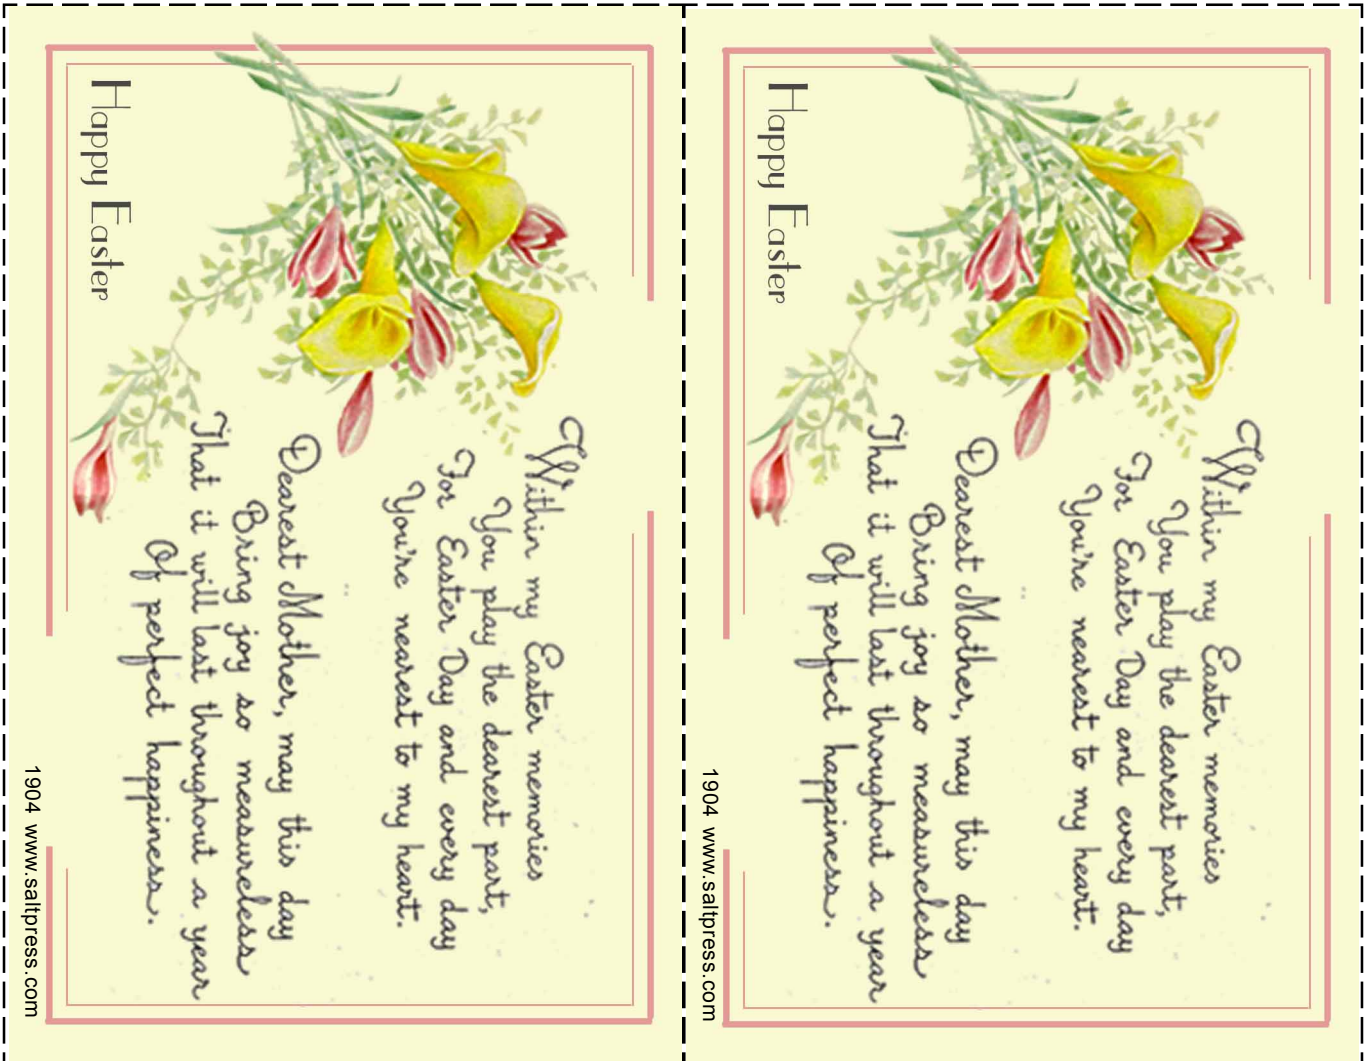 Within my Easter memories
You play the dearest part,
For Easter Day and every day
You're nearest to my heart.
Dearest Mother, may this day
Bring joy so measureless
That it will last throughout a year
Of perfect happiness.
Happy Easter
1904 www.saltpress.com
Within my Easter memories
You play the dearest part,
For Easter Day and every day
You're nearest to my heart.
Dearest Mother, may this day
Bring joy so measureless
That it will last throughout a year
Of perfect happiness.
Happy Easter
1904 www.saltpress.com